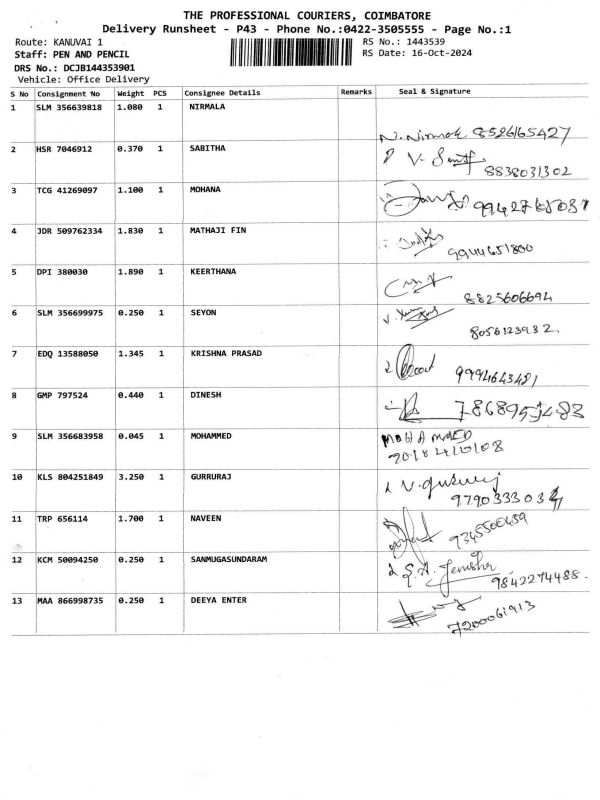 THE PROFESSIONAL COURIERS, COIMBATORE
Delivery Runsheet - P43 - Phone No.:0422-3505555 - Page No.:1
Route: KANUVAI 1 RS No.: 1443539
Staff: PEN AND PENCIL RS Date: 16-Oct-2024
DRS No.: DCJB144353901
Vehicle: Office Delivery
S No Consignment No Weight PCS Consignee Details Remarks Seal & Signature
1 SLM 356639818 1.080 1 NIRMALA
N. Nirmala 8526165427
2 HSR 7046912 0.370 1 SABITHA
8838031302
3 TCG 41269097 1.100 1 MOHANA
4 JDR 509762334 1.830 1 MATHAJI FIN
9944651800
5 DPI 380030 1.890 1 KEERTHANA
8825606694
6 SLM 356699975 0.250 1 SEYON
8056123932.
7 EDQ 13588050 1.345 1 KRISHNA PRASAD
9994643481
8 GMP 797524 0.440 1 DINESH
9 SLM 356683958 0.045 1 MOHAMMED
MOHAMMED
10 KLS 804251849 3.250 1 GURRURAJ
V. Gururaj
11 TRP 656114 1.700 1 NAVEEN
9345500459
12 KCM 50094250 0.250 1 SANMUGASUNDARAM
9842274488.
13 MAA 866998735 0.250 1 DEEYA ENTER
7200061913